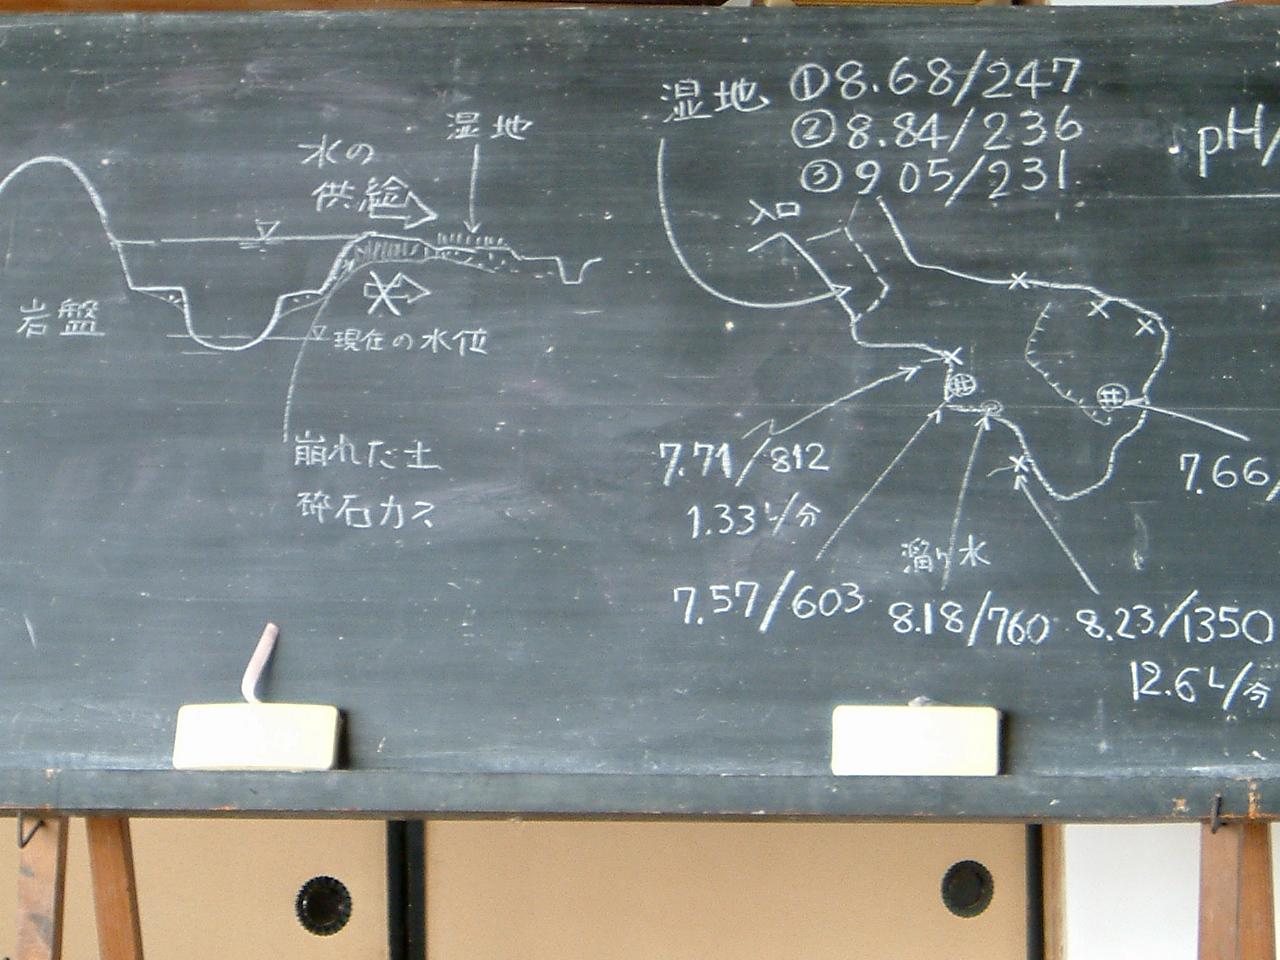 湿地
水の
供給
岩盤
現在の水位
崩れた土
砕石カス
湿地 ①8.68/247
②8.84/236
③9 05/231
pH/
入口
井
井
7.71/812
1.33 L/分
7.57/603
溜り水
8.18/760
8.23/1350
12.6 L/分
7.66/